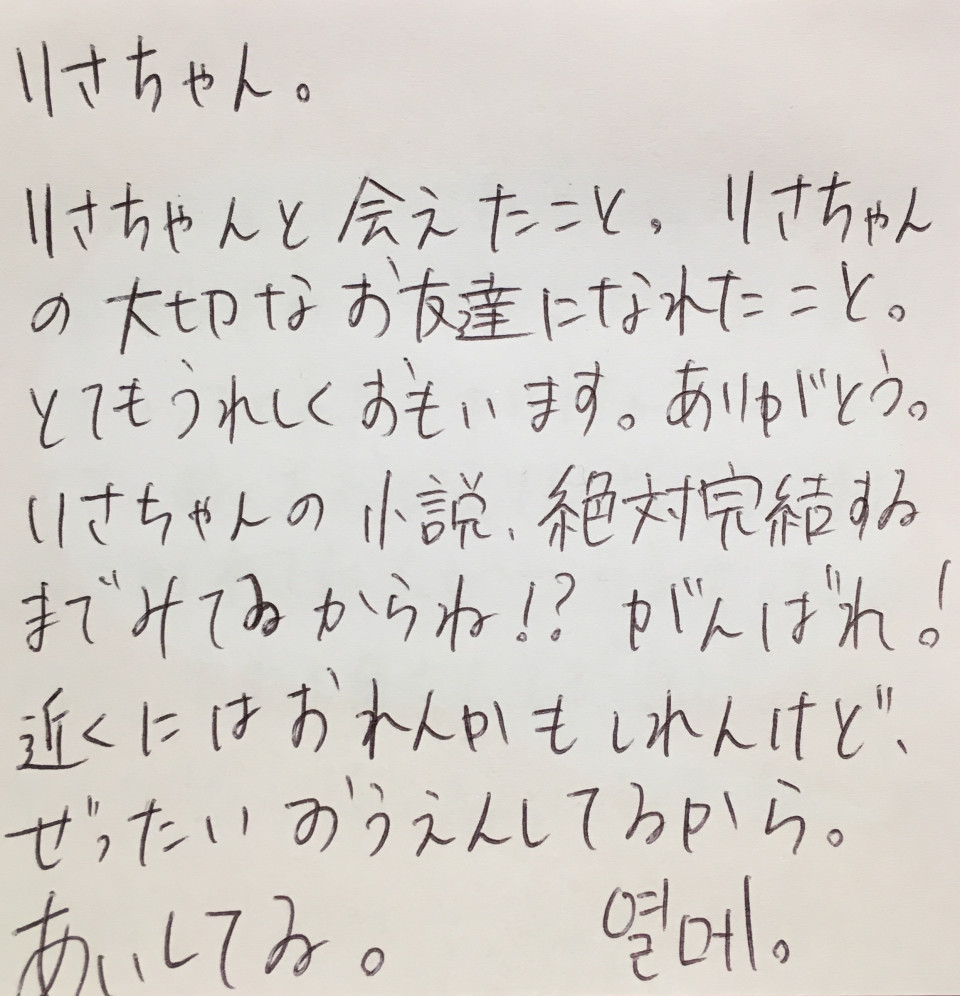 りさちゃん。
りさちゃんと会えたこと。りさちゃん
の大切なお友達になれたこと。
とてもうれしくおもいます。ありがとう。
りさちゃんの小説、絶対完結する
までみてるからね!? がんばれ!
近くにはおれんかもしれんけど、
ぜったいおうえんしてるから。
あいしてる。 열매。